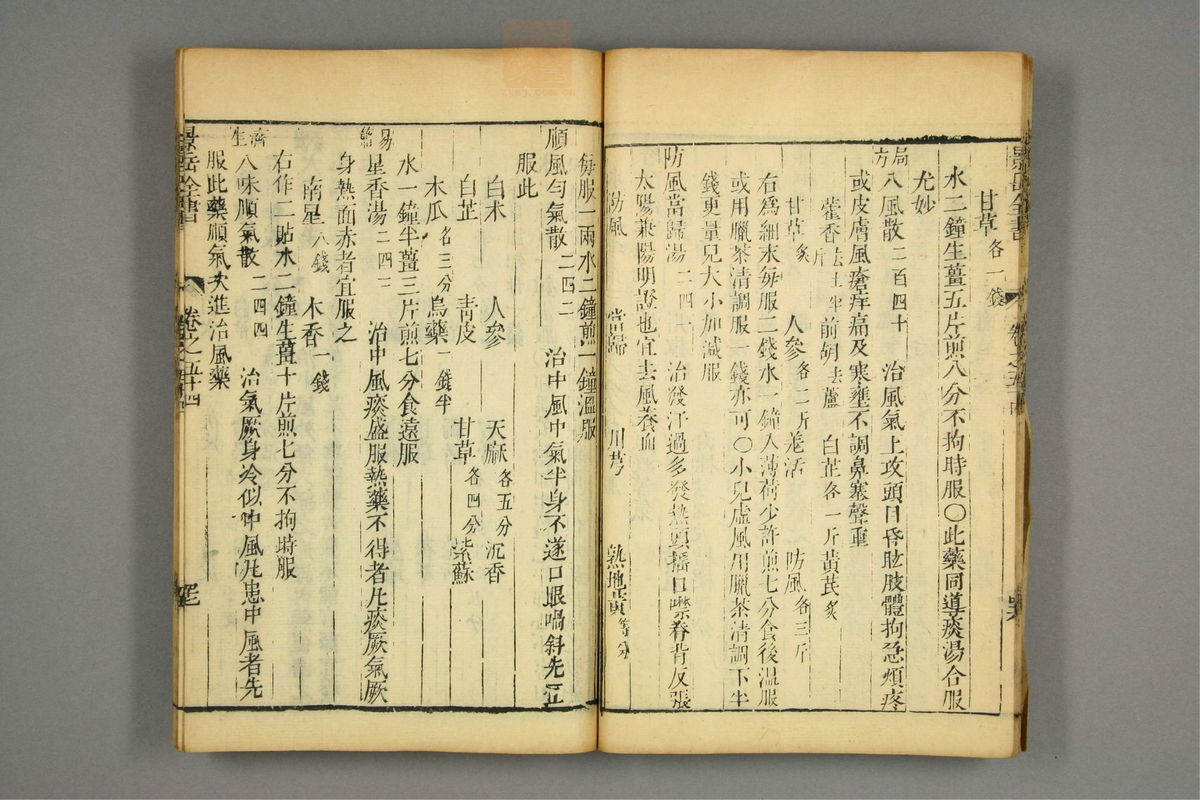 甘草各一錢
水二鐘生薑五片煎八分不拘時服○此藥同導痰湯合服
尤妙
局方八風散二百四十 治風氣上攻頭目昏眩肢體拘急煩疼
或皮膚風瘡痒痛及寒壅不調鼻塞聲重
藿香去土半斤 前胡去蘆 白芷各一斤 黃芪炙
甘草炙 人參各二斤 羌活 防風各三斤
右為細末每服二錢水一鐘入薄荷少許煎七分食後溫服
或用臘茶清調服一錢亦可○小兒虛風用臘茶清調下半
錢更量兒大小加減服
防風當歸湯二四一 治發汗過多發熱頭搖口噤脊背反張
太陽兼陽明證也宜去風養血
防風 當歸 川芎 熟地黃等分
每服一兩水二鐘煎一鐘溫服
順風勻氣散二四二 治中風中氣半身不遂口眼喎斜先宜
服此
白术 人參 天麻各五分 沉香
白芷 青皮 甘草各四分 紫蘇
木瓜各三分 烏藥一錢半
水一鐘半薑三片煎七分食遠服
易簡星香湯二四三 治中風痰盛服熱藥不得者凡痰厥氣厥
身熱面赤者宜服之
南星八錢 木香一錢
右作二貼水二鐘生薑十片煎七分不拘時服
濟生八味順氣散二四四 治氣厥身冷似中風凡患中風者先
服此藥順氣次進治風藥
景岳全書 卷之五十四